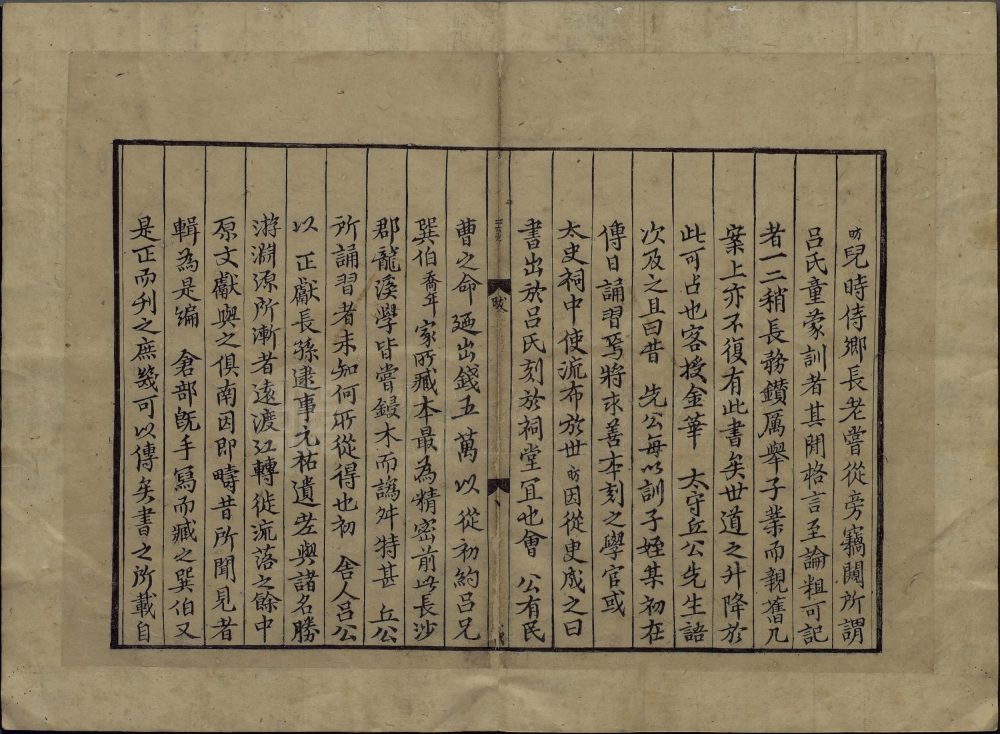 昉兒時侍鄉長老嘗從旁竊闖所謂
呂氏童蒙訓者其開格言至論粗可記
者一二稍長務鑽厲舉子業而親舊几
案上亦不復有此書矣世道之升降於
此可占也客授金華　太守丘公先生語
次及之且曰昔　先公每以訓子姪某初在
傳日誦習焉將求善本刻之學官或
太史祠中使流布於世昉因從臾成之曰
書出於呂氏刻於祠堂冝也會　公有民
跋
曹之命廼出錢五萬以從初約呂兄
巽伯喬年家所藏本最為精密前此長沙
郡龍溪學皆嘗鋟木而譌舛特甚　丘公
所誦習者未知何所從得也初　舍人呂公
以　正獻長孫逮事元祐遺老與諸名勝
游淵源所漸者遠渡江轉徙流落之餘中
原文獻與之俱南因即疇昔所聞見者
輯為是編　倉部既手寫而藏之巽伯又
是正而刋之庶幾可以傳矣書之所載自